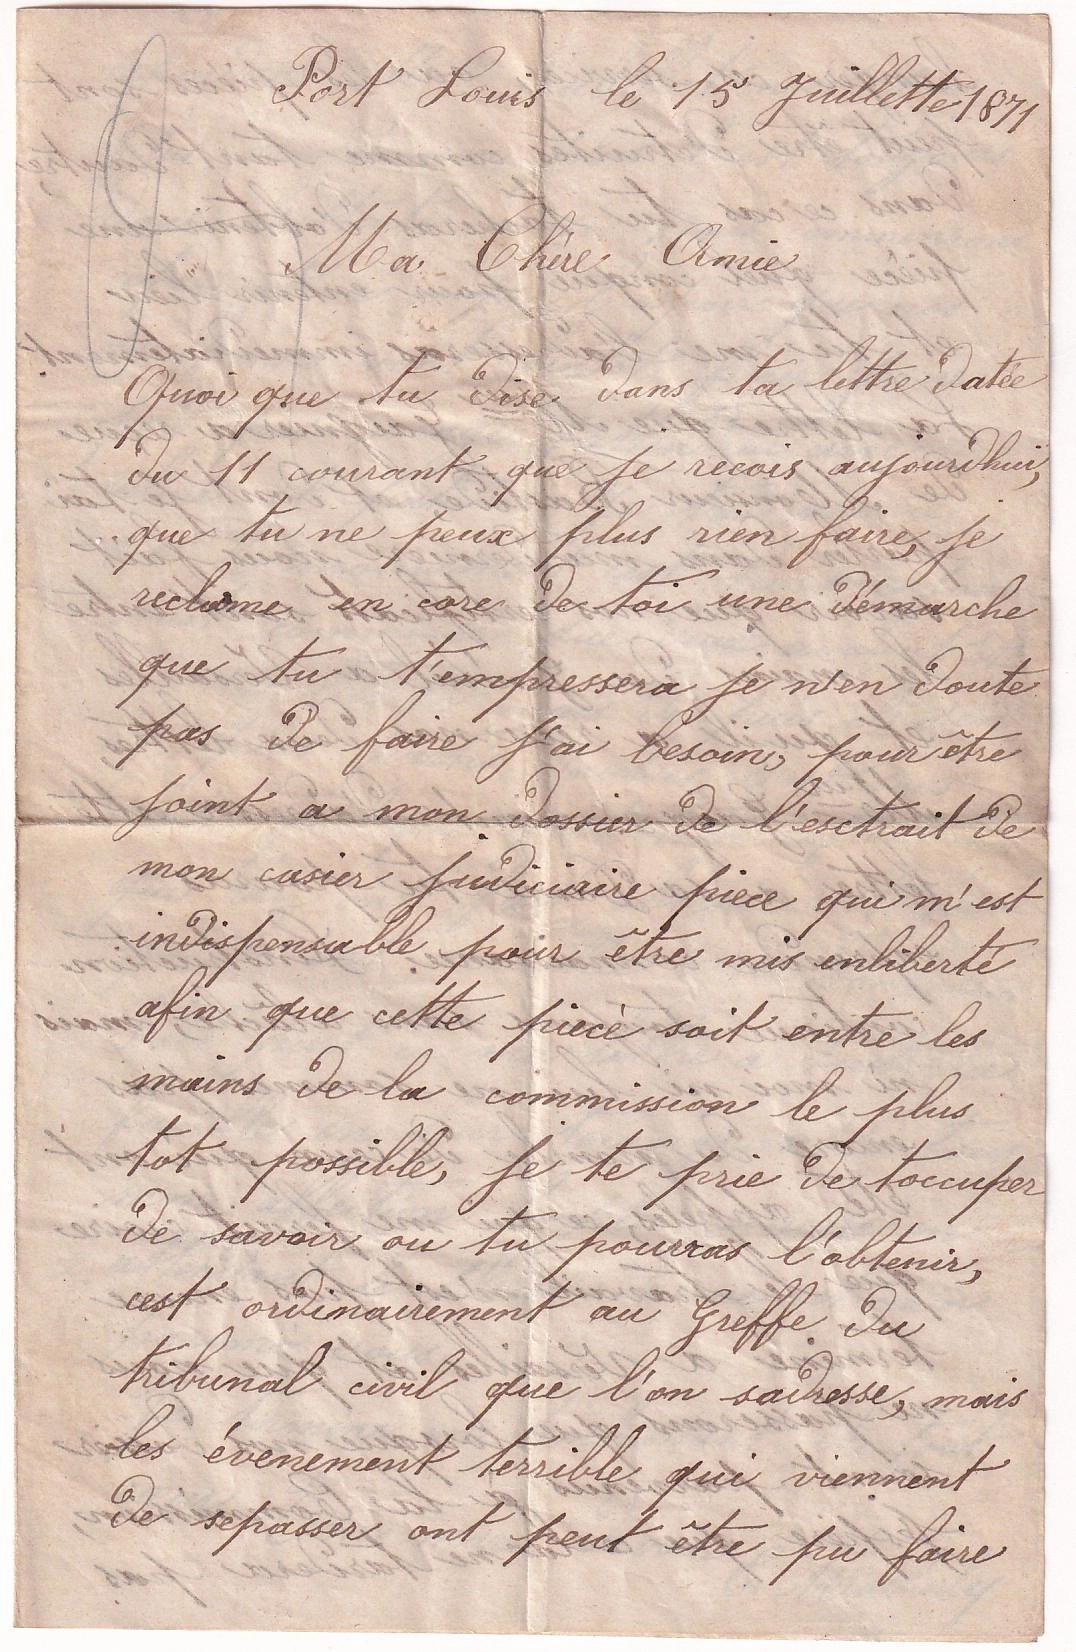 Port Louis le 15 Juillette 1871
Ma Chère Amie
Quoi que tu dise dans ta lettre datée
du 11 courant que je recois aujourdhui,
que tu ne peux plus rien faire, je
reclame en core de toi une démarche
que tu t'empressera je n'en doute
pas de faire j'ai besoin, pour être
joint a mon dossier de l'esctrait de
mon casier judiciaire piece qui m'est
indispensable pour être mis enliberté
afin que cette piecè soit entre les
mains de la commission le plus
tot possible, je te prie de toccuper
de savoir ou tu pourras l'obtenir,
cest ordinairement au Greffe du
tribunal civil que l'on sadresse, mais
les évenement terrible qui viennent
de sepasser ont peut être pu faire